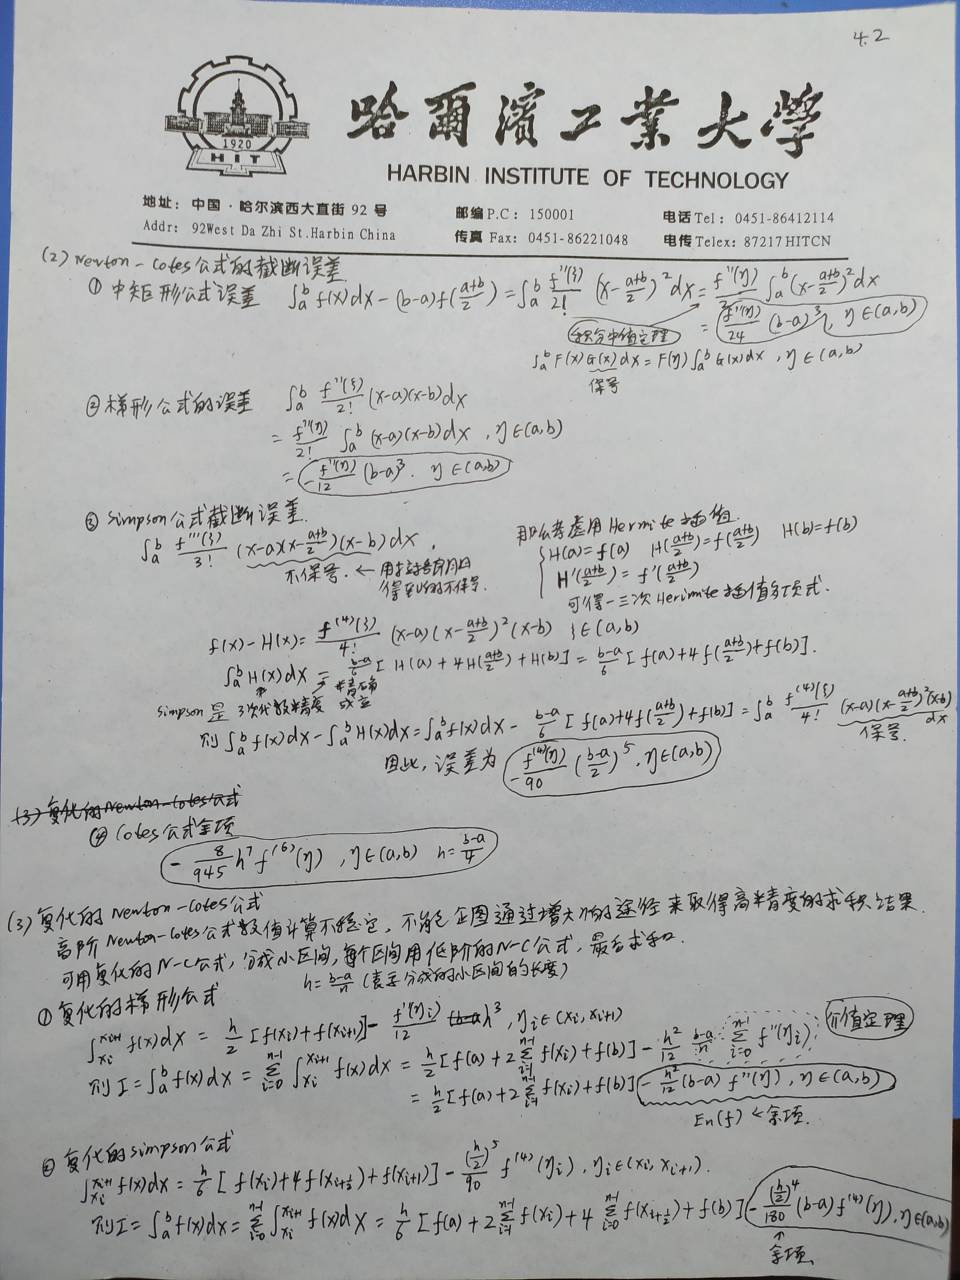 4.2
哈爾濱工業大學
1920
HIT
HARBIN INSTITUTE OF TECHNOLOGY
地址：中国·哈尔滨西大直街 92 号 邮编 P.C： 150001 电话 Tel： 0451-86412114
Addr: 92West Da Zhi St.Harbin China 传真 Fax: 0451-86221048 电传 Telex: 87217 HITCN
(2) Newton-Cotes公式的截断误差
① 中矩形公式误差 ∫_a^b f(x)dx - (b-a)f(\frac{a+b}{2}) = ∫_a^b \frac{f''(ξ)}{2!} (x-\frac{a+b}{2})^2 dx = \frac{f''(η)}{2} ∫_a^b (x-\frac{a+b}{2})^2 dx
= \frac{f''(η)}{24} (b-a)^3, η∈(a,b)
积分中值定理
∫_a^b F(x)G(x)dx = F(η)∫_a^b G(x)dx, η∈(a,b)
保号
② 梯形公式的误差 ∫_a^b \frac{f''(ξ)}{2!} (x-a)(x-b)dx
= \frac{f''(η)}{2!} ∫_a^b (x-a)(x-b)dx, η∈(a,b)
= -\frac{f''(η)}{12} (b-a)^3. η∈(a,b)
③ Simpson公式截断误差.
∫_a^b \frac{f'''(ξ)}{3!} (x-a)(x-\frac{a+b}{2})(x-b)dx,
不保号. ←
那么考虑用Hermite插值.
H(a)=f(a) H(\frac{a+b}{2})=f(\frac{a+b}{2}) H(b)=f(b)
H'(\frac{a+b}{2}) = f'(\frac{a+b}{2})
可得一三次Herimite插值多项式.
f(x)-H(x) = \frac{f^{(4)}(ξ)}{4!} (x-a)(x-\frac{a+b}{2})^2(x-b) ξ∈(a,b)
∫_a^b H(x)dx = \frac{b-a}{6} [H(a)+4H(\frac{a+b}{2})+H(b)] = \frac{b-a}{6} [f(a)+4f(\frac{a+b}{2})+f(b)].
Simpson是3次代数精度 精确成立
则 ∫_a^b f(x)dx - ∫_a^b H(x)dx = ∫_a^b f(x)dx - \frac{b-a}{6} [f(a)+4f(\frac{a+b}{2})+f(b)] = ∫_a^b \frac{f^{(4)}(ξ)}{4!} (x-a)(x-\frac{a+b}{2})^2(x-b)dx
保号.
因此, 误差为 -\frac{f^{(4)}(η)}{90} (\frac{b-a}{2})^5, η∈(a,b)
(3) 复化的Newton-Cotes公式
④ Cotes公式余项
-\frac{8}{945} h^7 f^{(6)}(η), η∈(a,b) h=\frac{b-a}{4}
(3) 复化的Newton-Cotes公式
高阶Newton-Cotes公式数值计算不稳定, 不能企图通过增大n的途径来取得高精度的求积结果.
可用复化的N-C公式, 分成小区间, 每个区间用低阶的N-C公式, 最后求和.
h=\frac{b-a}{n} (表示分成的小区间的长度)
① 复化的梯形公式
∫_{x_i}^{x_{i+1}} f(x)dx = \frac{h}{2} [f(x_i)+f(x_{i+1})] - \frac{f''(η_i)}{12} h^3, η_i∈(x_i,x_{i+1})
介值定理
则 I=∫_a^b f(x)dx = \sum_{i=0}^{n-1} ∫_{x_i}^{x_{i+1}} f(x)dx = \frac{h}{2} [f(a)+2\sum_{i=1}^{n-1} f(x_i)+f(b)] - \frac{h^2}{12} \frac{b-a}{n} \sum_{i=0}^{n-1} f''(η_i)
= \frac{h}{2} [f(a)+2\sum_{i=1}^{n-1} f(x_i)+f(b)] -\frac{h^2}{12} (b-a) f''(η), η∈(a,b)
En(f) ← 余项.
② 复化的Simpson公式
∫_{x_i}^{x_{i+1}} f(x)dx = \frac{h}{6} [f(x_i)+4f(x_{i+\frac{1}{2}})+f(x_{i+1})] - \frac{(\frac{h}{2})^5}{90} f^{(4)}(η_i), η_i∈(x_i,x_{i+1}).
则 I=∫_a^b f(x)dx = \sum_{i=0}^{n-1} ∫_{x_i}^{x_{i+1}} f(x)dx = \frac{h}{6} [f(a)+2\sum_{i=1}^{n-1} f(x_i)+4\sum_{i=0}^{n-1} f(x_{i+\frac{1}{2}})+f(b)] -\frac{(\frac{h}{2})^4}{180} (b-a) f^{(4)}(η), η∈(a,b)
↑
余项